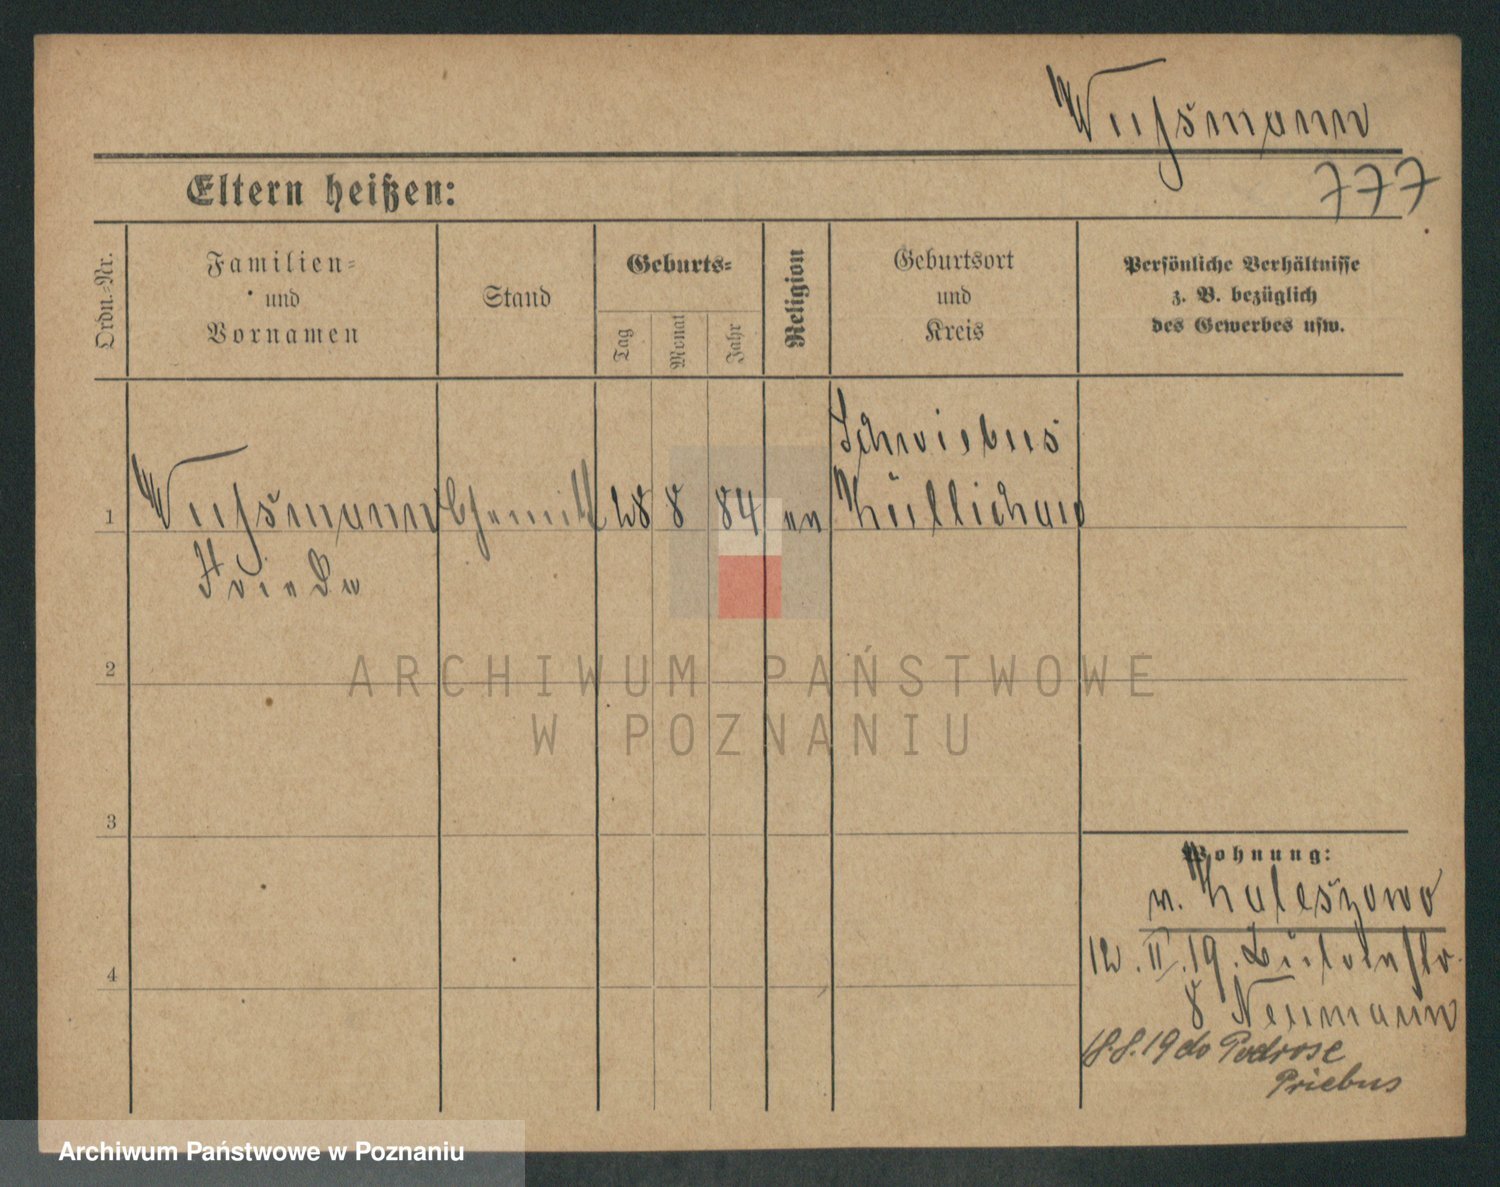 Wußmann
Eltern heißen:
777
Ordn.-Nr.
Familien-
und
Vornamen
Stand
Geburts-
Tag
Monat
Jahr
Religion
Geburtsort
und
Kreis
Persönliche Verhältnisse
z. B. bezüglich
des Gewerbes usw.
Schwiebus
1 Wußmann 28 8 84 ev Züllichau
Frieda
2
ARCHIWUM PAŃSTWOWE
W POZNANIU
3
Wohnung:
v.
4
12. II. 19.
8 Neumann
18.8.19 do Podrosc
Priebus
Archiwum Państwowe w Poznaniu